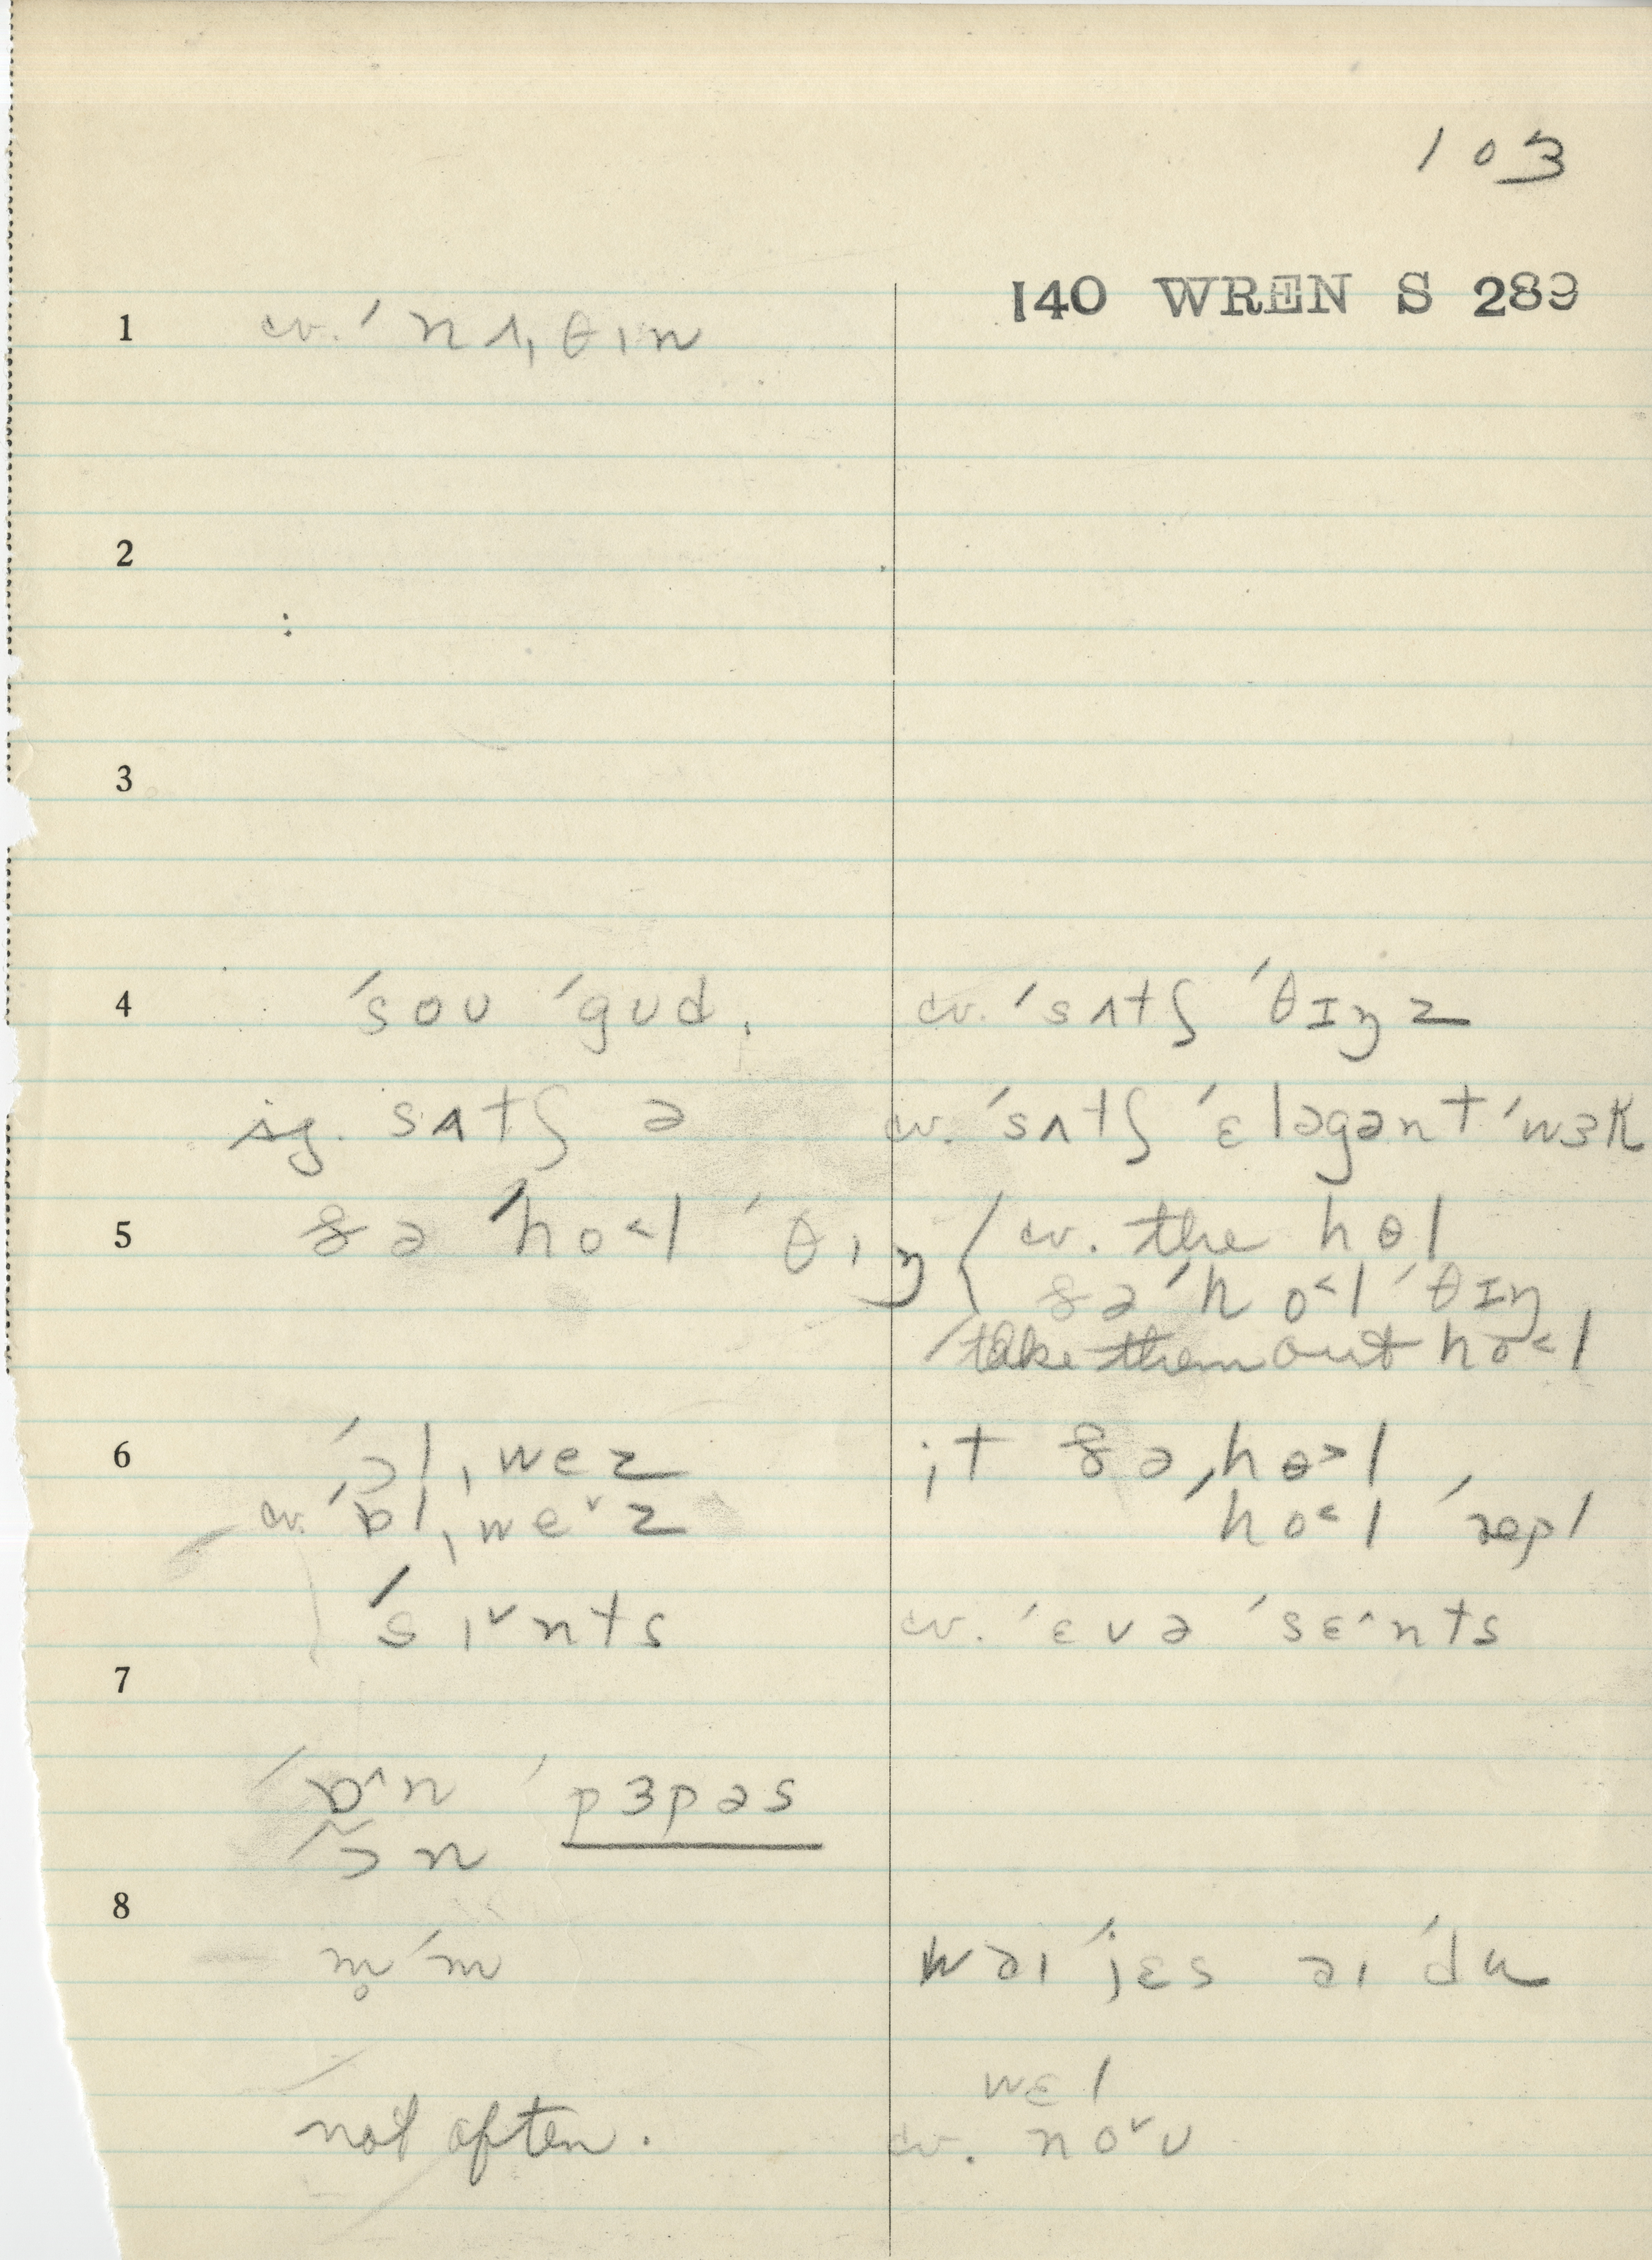 103
140 WREN S 289
1 cv. ˈnʌˌθɪn
2
:
3
4 ˈsoʊ ˈgʊd. cv. ˈsʌtʃ ˈθɪŋz
sg. sʌtʃ ə cv. ˈsʌtʃ ˈɛləgənt ˈwɜk
5 ðə ˈho˂l ˈθɪŋ { cv. the hɵl
ðə ˈho˂l ˈθɪŋ
take them out ho˂l
6 ˈɔlˌwez ɪt ðə ˌhɵ˃l
cv. ˈɒlˌweˇz ˈho˂l ˈrepl
ˈsɪˇnts cv. ˈɛvə ˈsɛ^nts
7
ˈɒ^n ˈpɜpəs
ˈɔ̃n
8
m̥ˈm wəɪ ˈjɛs əɪ ˈdu
wɛl
not often. cv. noˇʊ